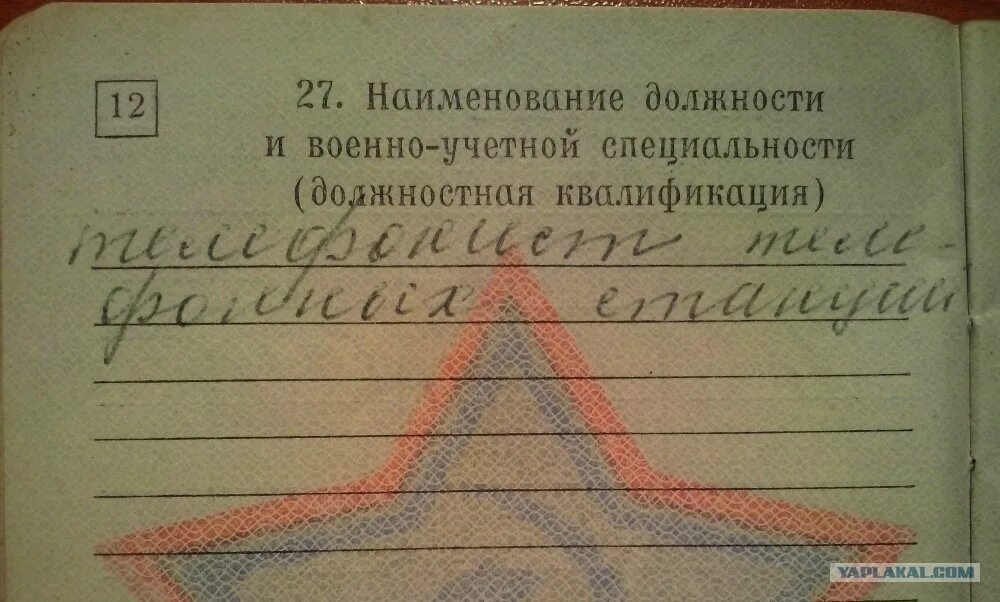 12
27. Наименование должности
и военно-учетной специальности
(должностная квалификация)
телефонист теле-
фонных станций
YAPLAKAL.COM